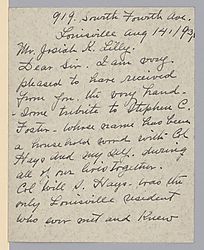 919. South Fourth Ave.
Louisville Aug 14/193
Mr. Josiah K. Lilly.
Dear Sir. I am very
pleased to have received
from you. the very hand-
-some tribute to Stephen C.
Foster- whose name has been
a household word with Col
Hays and my self. during
all of our lives together.
Col Will S. Hays- was the
only Louisville resident
who ever met and knew